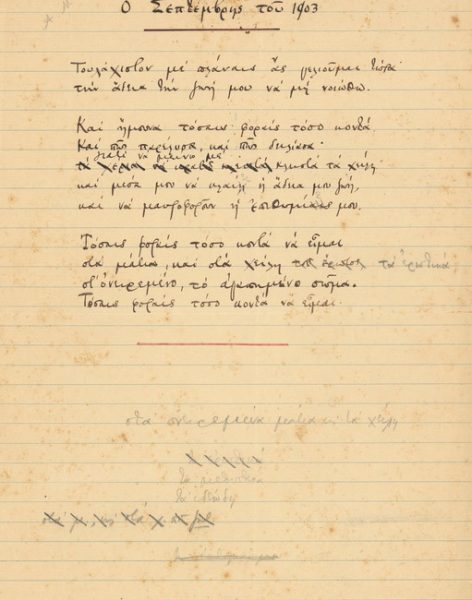 Ο Σεπτέμβρης τοῦ 1903
Τουλάχιστον μέ πλάναις ἄς γελιοῦμαι τώρα·
τήν ἄδεια τήν ζωή μου νά μή νοιώθω.
Καί ἤμουνα τόσαις φοραίς τόσο κοντά
Καί πῶς παρέλυσα, καί πῶς δειλίασα·
γιατί νά μείνω μέ
κλειστά τά χείλη
καί μέσα μου νά κλαίῃ ἡ ἄδεια μου ζωή,
καί νά μαυροφοροῦν ἡ ἐπιθυμίαις μου.
Τόσαις φοραίς τόσο κοντά νά εἶμαι
στά μάτια, καί στά χείλη τά ἐρωτικά
στ' ὀνειρεμένο, τό ἀγαπημένο σῶμα.
Τόσαις φοραίς τόσο κοντά νά εἶμαι.
στά ὀνειρεμένα μάτια κι τά χείλη